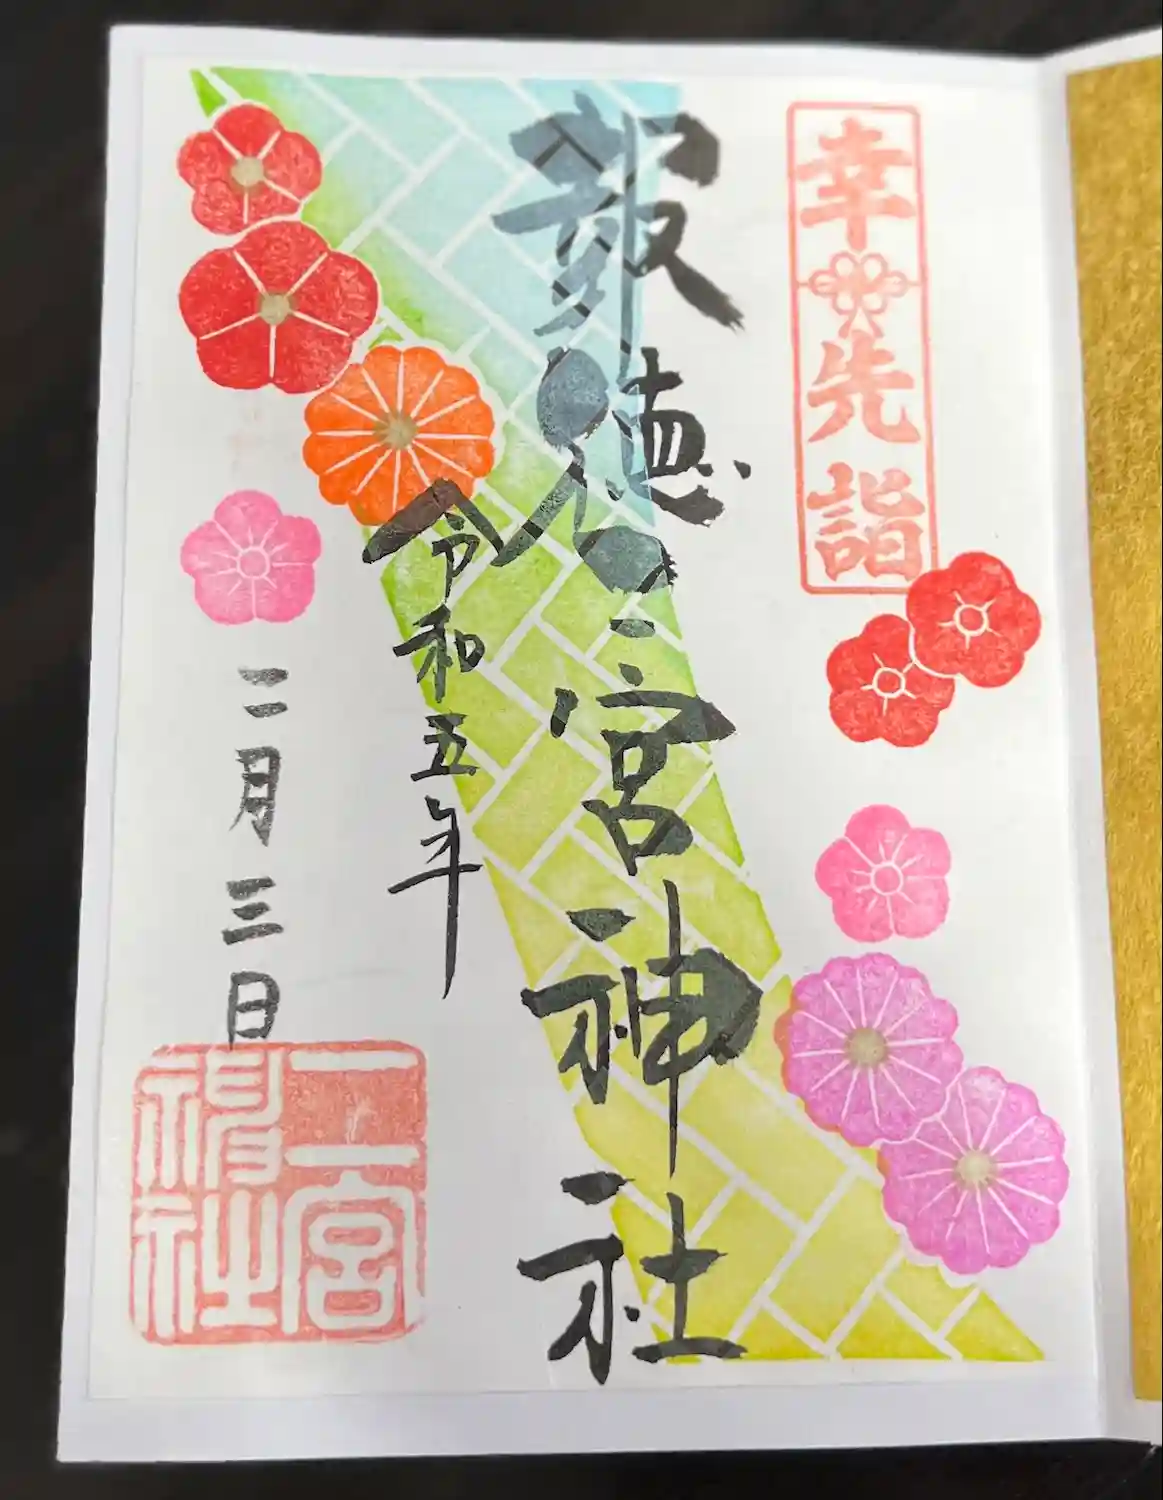 幸先詣
報徳二宮神社
令和五年
二月三日
二宮神社